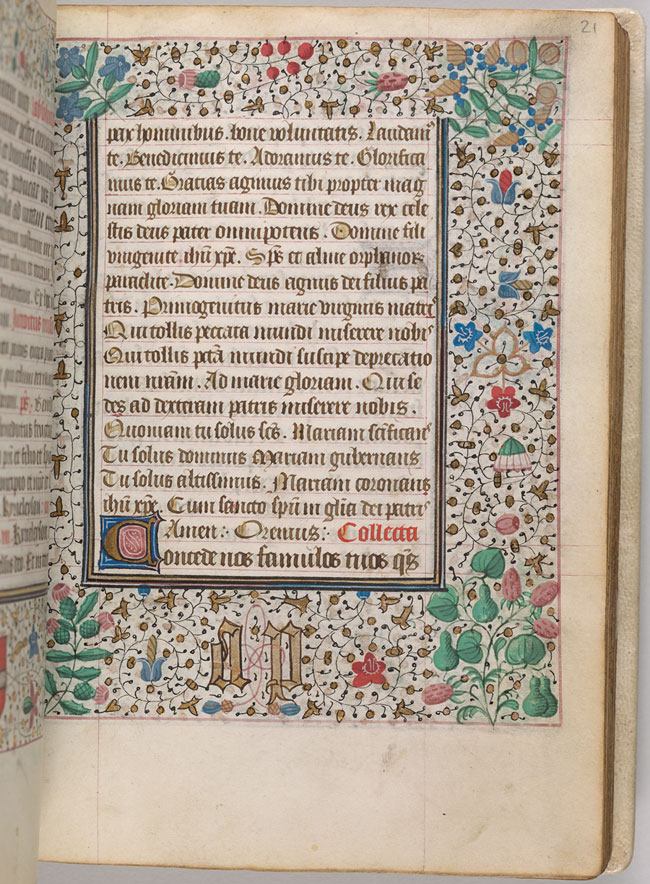 21
pax hominibus. bone voluntatis. Laudam⁹
te. Benedicimus te. Adoramus te. Glorifica
mus te. Gracias agimus tibi propter mag
nam gloriam tuam. Domine deus rex cele
stis deus pater omnipotens. Domine fili
vnigenite. ihũ xp̃e. Sp̃s et alme orphanoꝝ
paraclite. Domine deus agnus dei filius pa
tris. Primogenitus marie virginis matrꝭ
Qui tollis peccata mundi miserere nobꝭ
Qui tollis pctã mundi suscipe deprecatio
nem nr̃am. Ad marie gloriam. Qui se
des ad dexteram patris miserere nobis.
Quoniam tu solus sc̃s. Mariam sc̃ifican⁹
Tu solus dominus Mariam gubernans
Tu solus altissimus. Mariam coronans
ihũ xp̃e. Cum sancto spũ in gl̃ia dei patrꝭ
Amen: Oremus: Collecta
Concede nos famulos tuos q̃s
a p